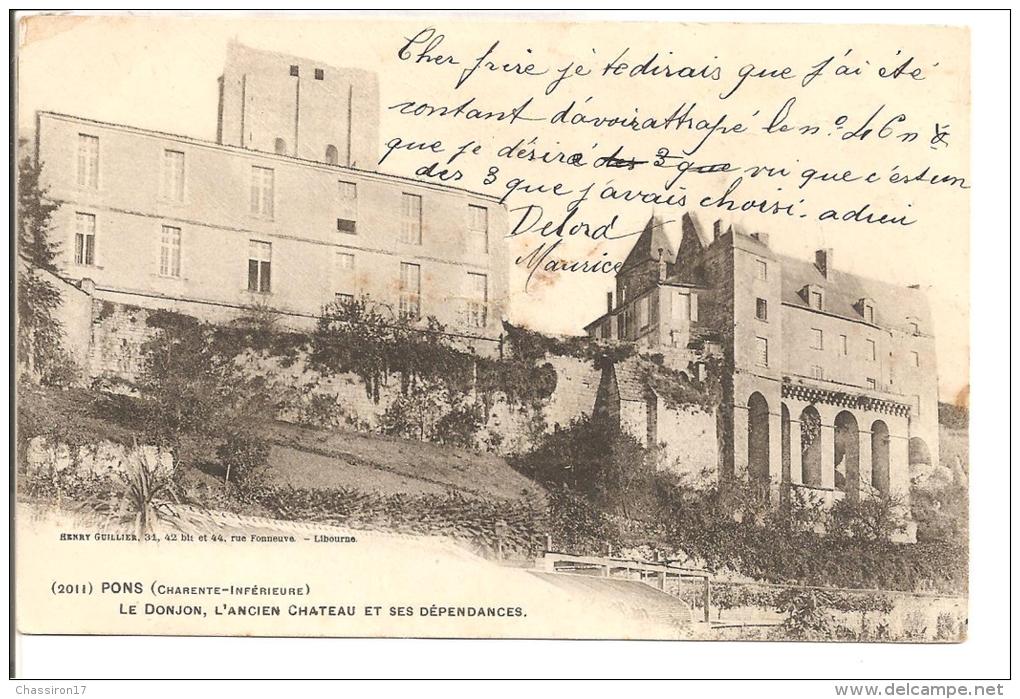 Cher frire je te dirais que j'ai été
contant d'avoir attrapé le n.o 46 n
que je désiré des 3 que vu que c'est un
des 3 que j'avais choisi. adieu
Delord
Maurice
HENRY GUILLIER, 31, 42 bis et 44, rue Fonneuve. - LIBOURNE.
(2011) PONS (CHARENTE-INFÉRIEURE)
LE DONJON, L'ANCIEN CHATEAU ET SES DÉPENDANCES.
Chassiron17
www.delcampe.net